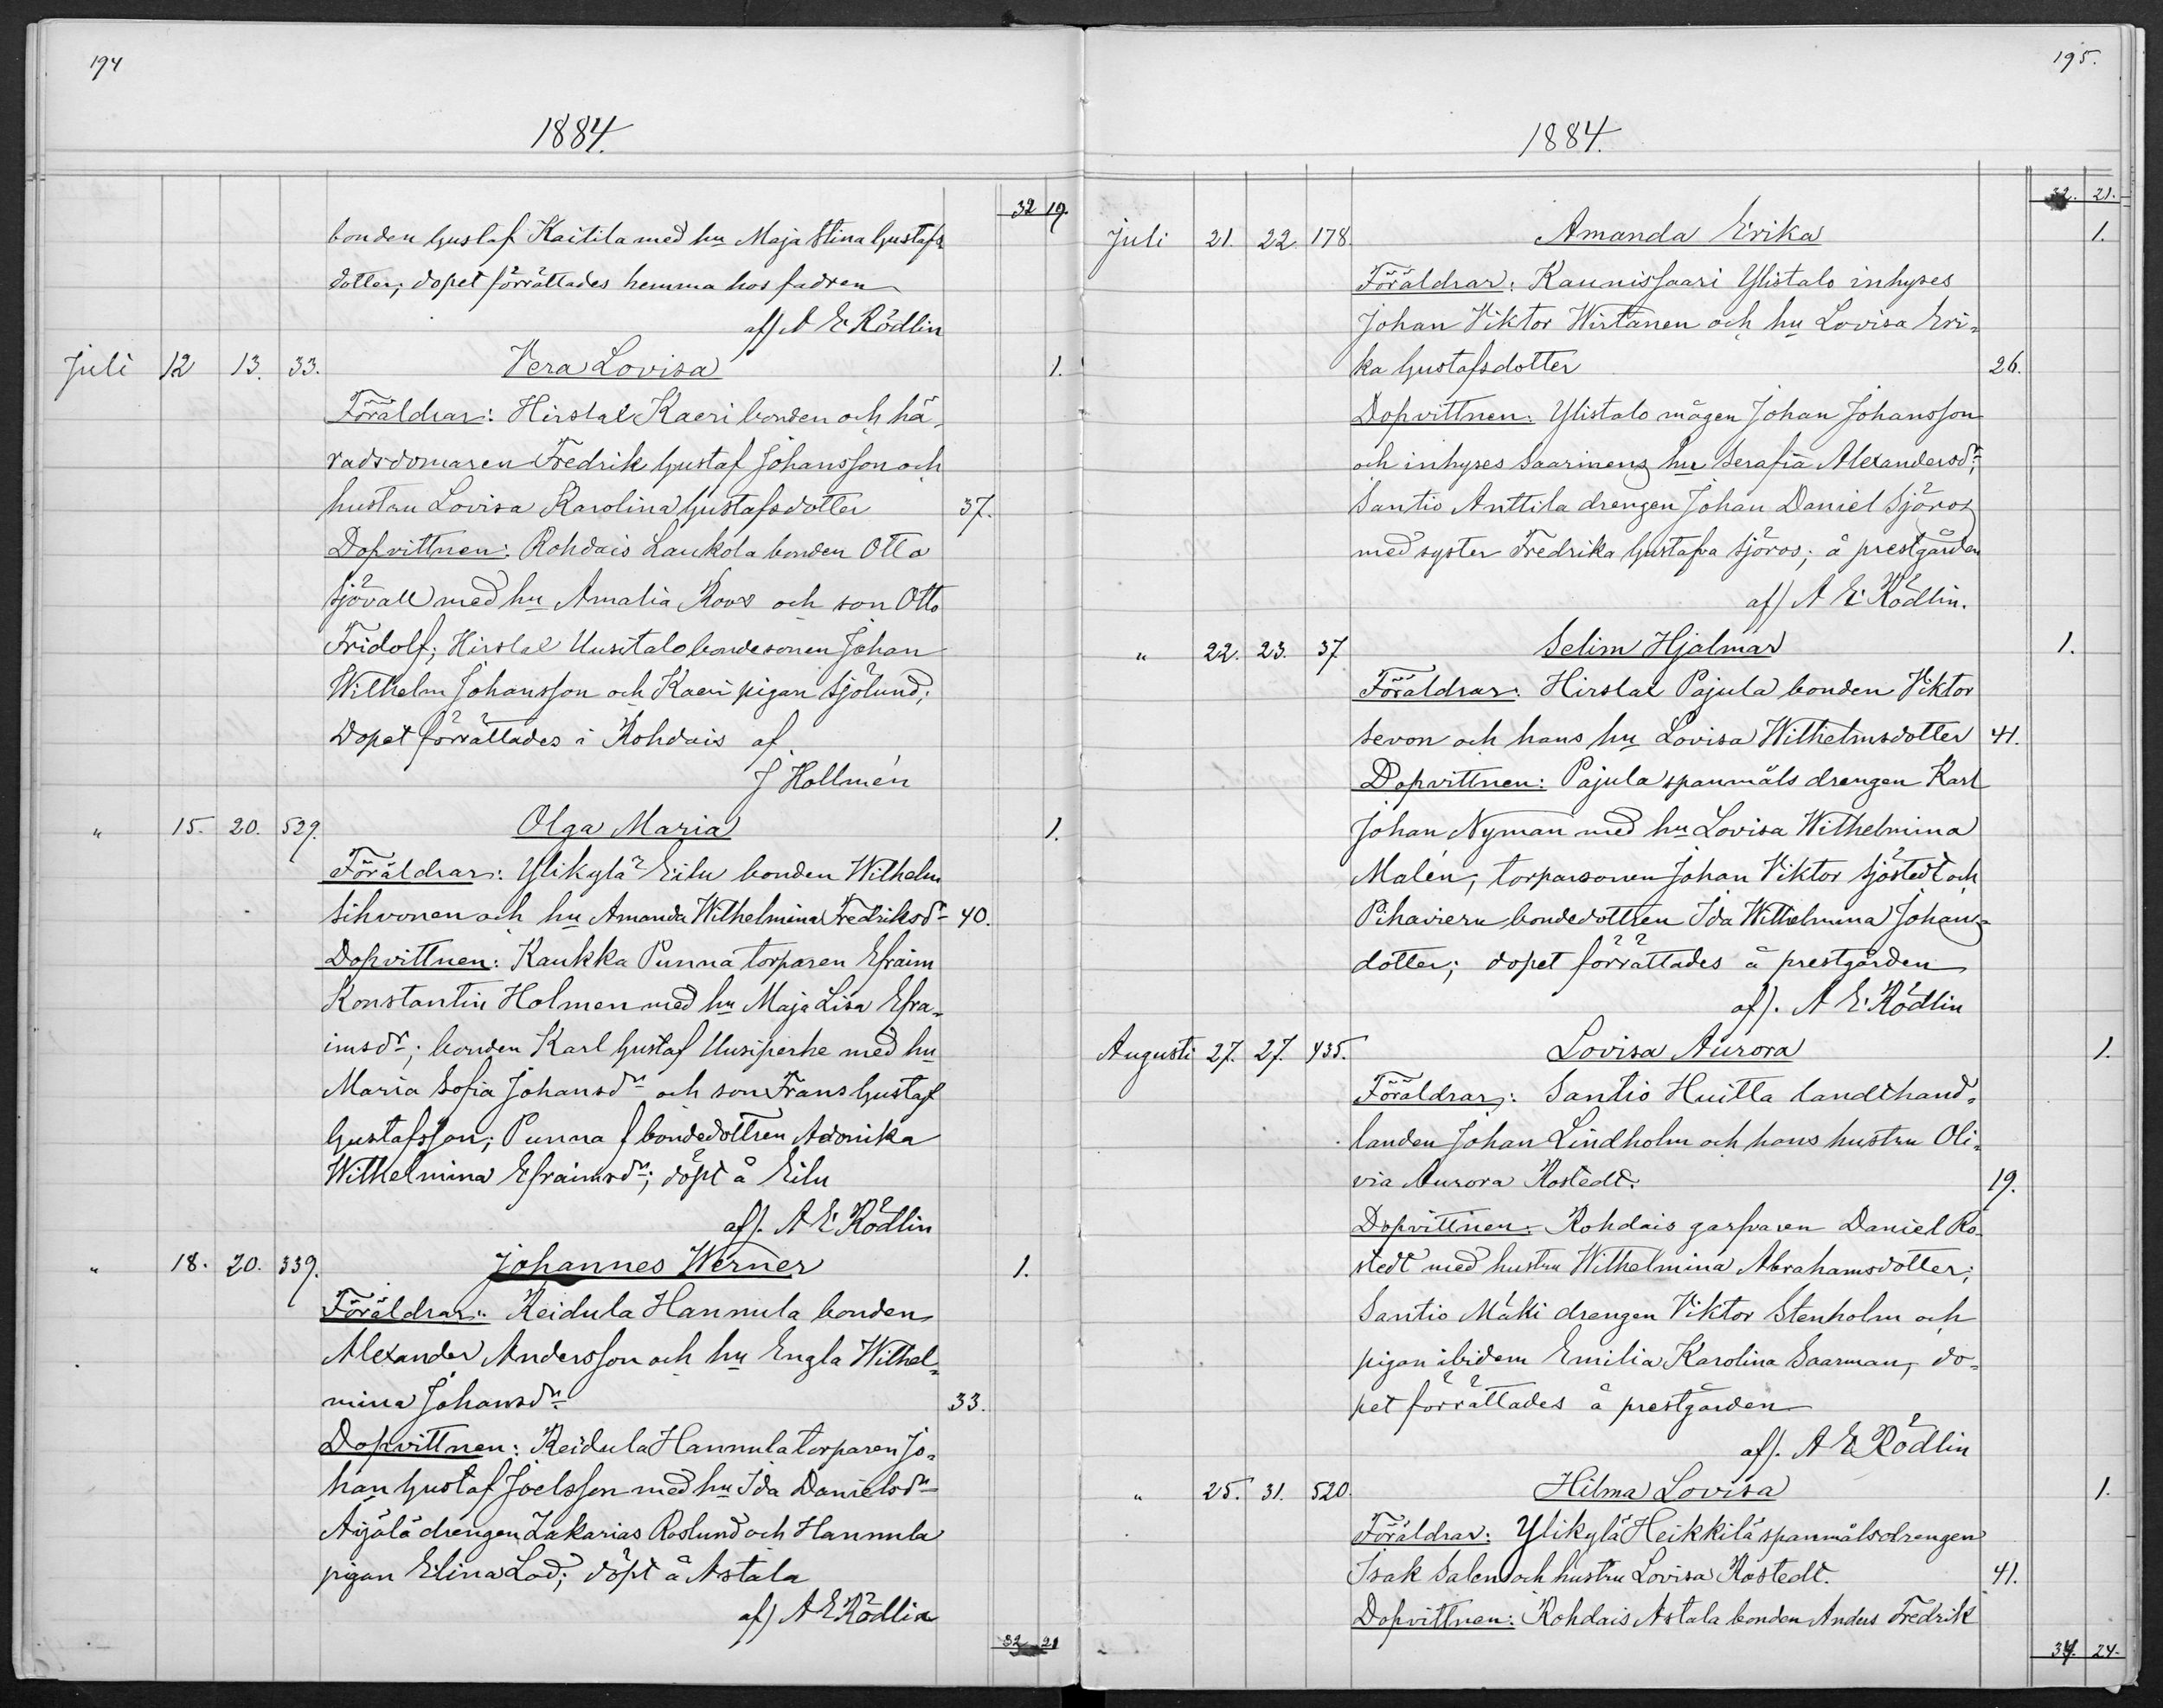 194
1884.
32 19.
bonden Gustaf Kaitila med hu Maja Stina Gustafs
dotter; dopet förrättades hemma hos fadren
af/ A E Rödlin
Juli 12 13. 33. Vera Lovisa 1.
Föräldrar: Hirslax Kaeri bonden och hä-
radsdomaren Fredrik Gustaf Johansson och
hustru Lovisa Karolina Gustafsdotter 37.
Dopvittnen: Rohdais Laukola bonden Otto
Sjövall med hu Amalia Roos och son Otto
Fridolf; Hirslax Uusitalo bondesonen Johan
Wilhelm Johansson och Kaeri pigan Sjölund;
Dopet förrättades i Rohdais af
J Hollmén
" 15. 20. 529. Olga Maria 1.
Föräldrar: Ylikylä Eilu bonden Wilhelm
Sihvonen och hu Amanda Wilhelmina Fredriksdr 40.
Dopvittnen: Kaukka Punna torparen Efraim
Konstantin Holmen med hu Maja Lisa Efra-
imsdr; bonden Karl Gustaf Uusiperhe med hu
Maria Sofia Johansdr och son Frans Gustaf
Gustafsson; Punna f bondedottren Adonika
Wilhelmina Efraimsdr; döpt å Eilu
af/. A E Rödlin
" 18. 20. 339. Johannes Werner 1.
Föräldrar: Keidula Hannula bonden
Alexander Andersson och hu Engla Wilhel-
mina Johansdr 33.
Dopvittnen: Keidula Hannula torparen Jo-
han Gustaf Joelsson med hu Ida Danielsdr
Äijälä drengen Zakarias Roslund och Hannula
pigan Elina Lod; döpt å Astala
af/ A E Rödlin
32 21
195.
1884.
32. 21.
Juli 21. 22. 178. Amanda Erika 1.
Föräldrar: Kaunissaari Ylistalo inhyses
Johan Viktor Wirtanen och hu Lovisa Eri-
ka Gustafsdotter 26.
Dopvittnen: Ylistalo mågen Johan Johansson
och inhyses Saarinens hu Serafia Alexandersdr;
Santio Anttila drengen Johan Daniel Sjöros
med syster Fredrika Gustafva Sjöros; å prestgården
af/ A E Rödlin.
" 22. 23. 37 Selim Hjalmar 1.
Föräldrar: Hirslax Pajula bonden Viktor
Sevon och hans hu Lovisa Wilhelmsdotter 41.
Dopvittnen: Pajula spanmåls drengen Karl
Johan Nyman med hu Lovisa Wilhelmina
Malén; torparsonen Johan Viktor Sjöstedt och
Pihavieru bondedottren Ida Wilhelmina Johans-
dotter; dopet förrättades å prestgården
af/. A E Rödlin
Augusti 27. 27. 435. Lovisa Aurora 1.
Föräldrar: Santio Huitta landthand-
landen Johan Lindholm och hans hustru Oli-
via Aurora Rostedt. 19.
Dopvittnen: Rohdais garfvaren Daniel Ro-
stedt med hustru Wilhelmina Abrahamsdotter;
Santio Mäki drengen Viktor Stenholm och
pigan ibidem Emilia Karolina Saarman, do-
pet förrättades å prestgården
af/. A E Rödlin
" 25. 31. 520. Hilma Lovisa 1.
Föräldrar: Ylikylä Heikkilä spanmålsdrengen
Isak Salen och hustru Lovisa Rostedt. 41.
Dopvittnen: Rohdais Astala bonden Anders Fredrik
34. 24.